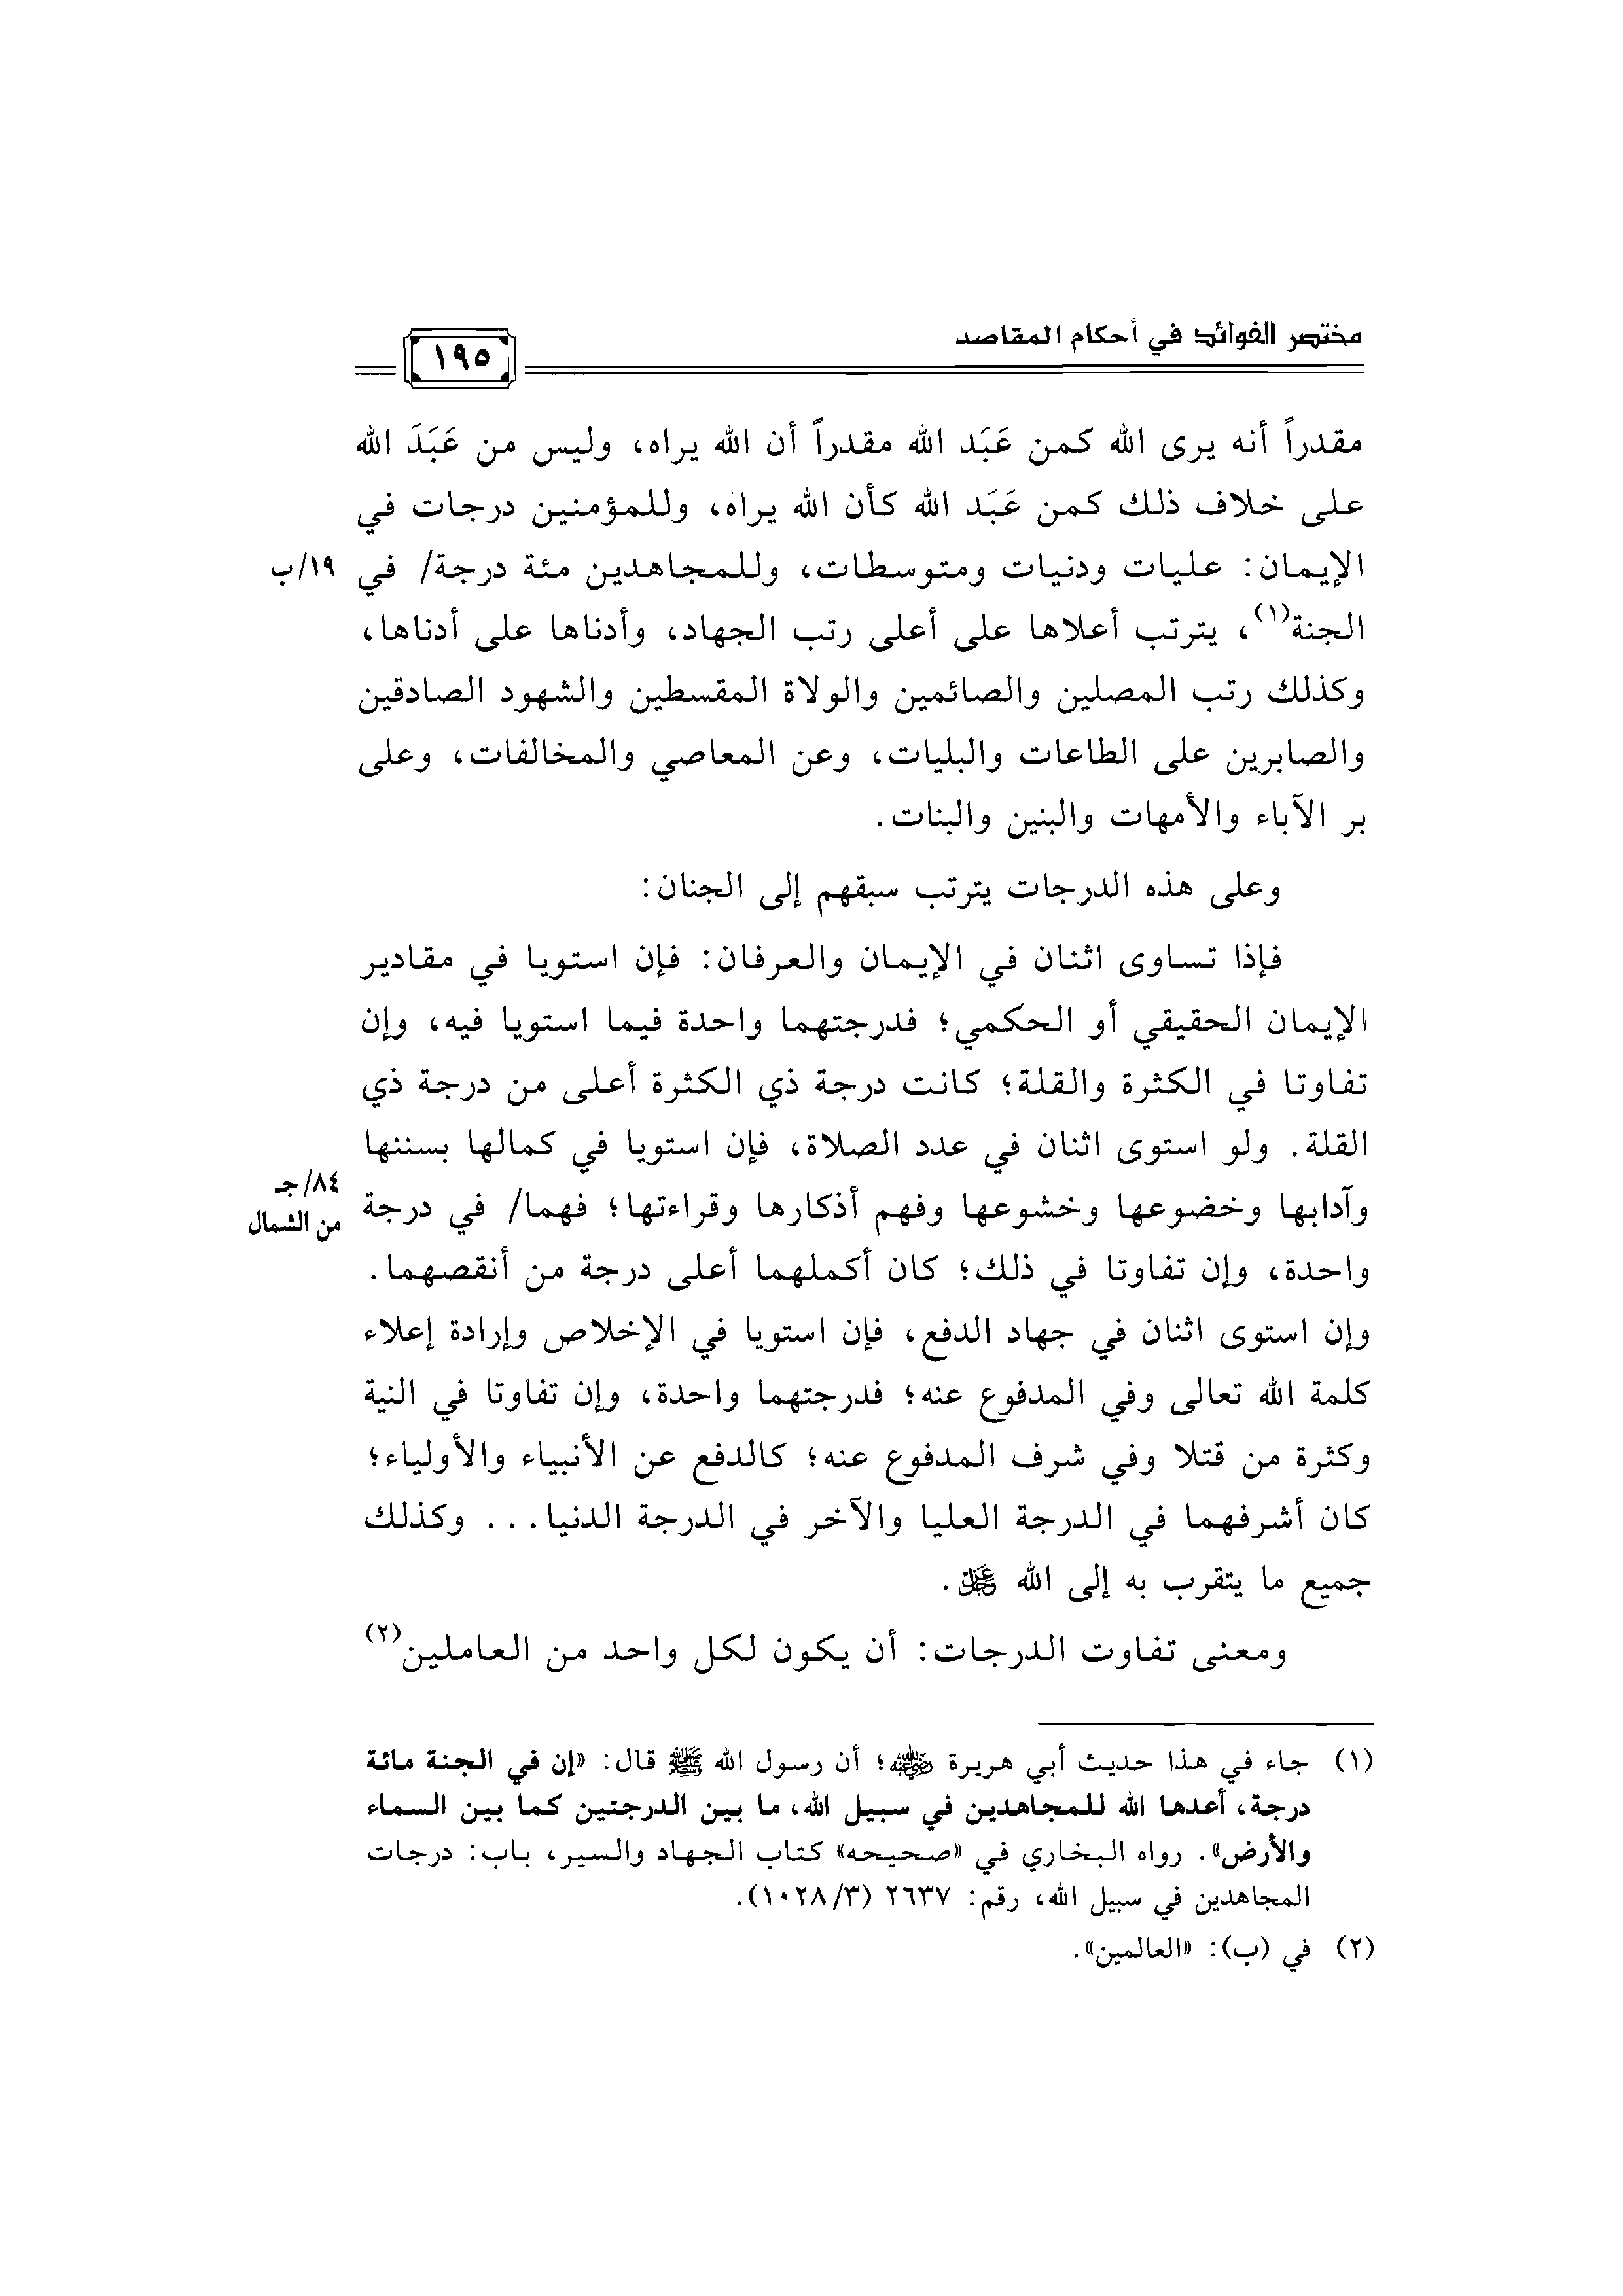 مختصر الفوائد في أحكام المقاصد
١٩٥
مقدراً أنه يرى الله كمن عَبَد الله مقدراً أن الله يراه، وليس من عَبَدَ الله
على خلاف ذلك كمن عَبَد الله كأن الله يراه، وللمؤمنين درجات في
الإيمان: عليات ودنيات ومتوسطات، وللمجاهدين مئة درجة/ في ١٩/ب
الجنة(١)، يترتب أعلاها على أعلى رتب الجهاد، وأدناها على أدناها،
وكذلك رتب المصلين والصائمين والولاة المقسطين والشهود الصادقين
والصابرين على الطاعات والبليات، وعن المعاصي والمخالفات، وعلى
بر الآباء والأمهات والبنين والبنات.
وعلى هذه الدرجات يترتب سبقهم إلى الجنان:
فإذا تساوى اثنان في الإيمان والعرفان: فإن استويا في مقادير
الإيمان الحقيقي أو الحكمي؛ فدرجتهما واحدة فيما استويا فيه، وإن
تفاوتا في الكثرة والقلة؛ كانت درجة ذي الكثرة أعلى من درجة ذي
القلة. ولو استوى اثنان في عدد الصلاة، فإن استويا في كمالها بسننها
٨٤/جـ
وآدابها وخضوعها وخشوعها وفهم أذكارها وقراءتها؛ فهما/ في درجة
من الشمال
واحدة، وإن تفاوتا في ذلك؛ كان أكملهما أعلى درجة من أنقصهما.
وإن استوى اثنان في جهاد الدفع، فإن استويا في الإخلاص وإرادة إعلاء
كلمة الله تعالى وفي المدفوع عنه؛ فدرجتهما واحدة، وإن تفاوتا في النية
وكثرة من قتلا وفي شرف المدفوع عنه؛ كالدفع عن الأنبياء والأولياء؛
كان أشرفهما في الدرجة العليا والآخر في الدرجة الدنيا... وكذلك
جميع ما يتقرب به إلى الله عز وجل.
ومعنى تفاوت الدرجات: أن يكون لكل واحد من العاملين(٢)
(١) جاء في هذا حديث أبي هريرة رضي الله عنه؛ أن رسول الله ﷺ قال: «إن في الجنة مائة
درجة، أعدها الله للمجاهدين في سبيل الله، ما بين الدرجتين كما بين السماء
والأرض». رواه البخاري في «صحيحه» كتاب الجهاد والسير، باب: درجات
المجاهدين في سبيل الله، رقم: ٢٦٣٧ (١٠٢٨/٣).
(٢) في (ب): «العالمين».